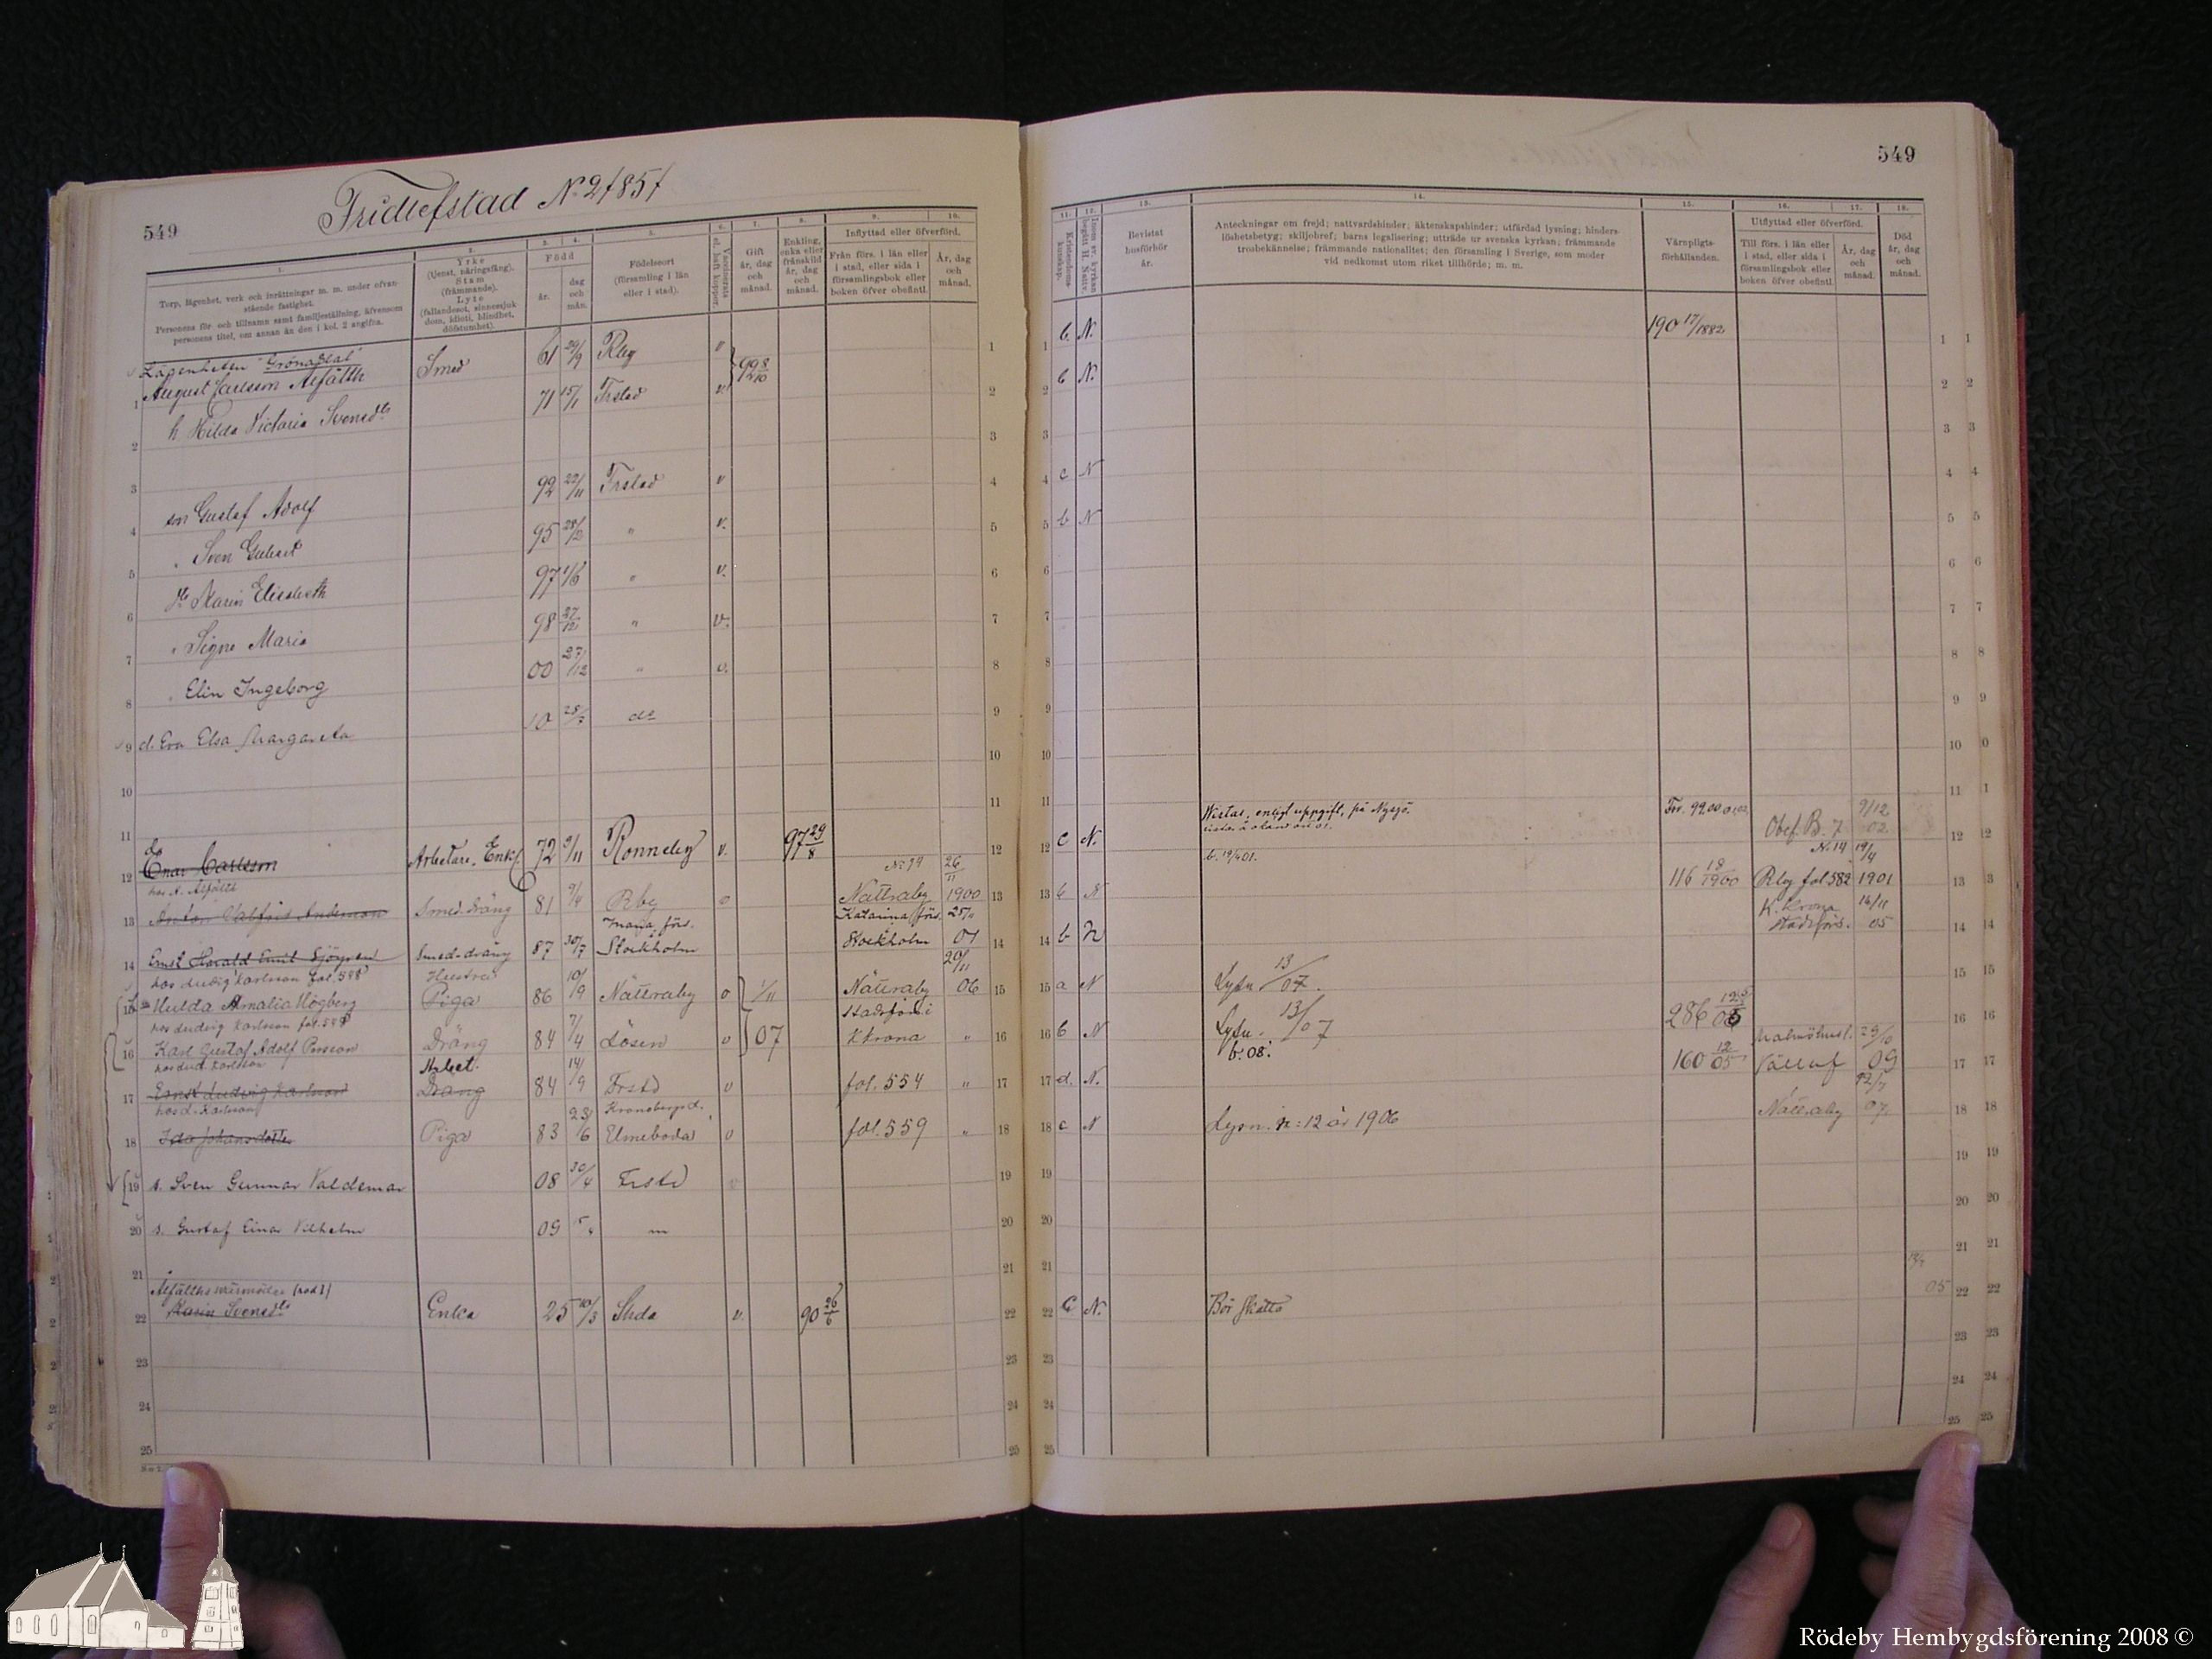 549
Fridlefstad No 2 /85/
549
1. 2. 3. 4. 5. 6. 7. 8. 9. 10.
Torp, lägenhet, verk och inrättningar m. m. under ofvan-
stående fastighet.
Personens för- och tillnamn samt familjeställning, äfvensom
personens titel, om annan än den i kol. 2 angifna.
Yrke
(tjenst, näringsfång).
Stam
(främmande).
Lyte
(fallandesot, sinnessjuk
dom, idioti, blindhet,
döfstumhet).
Född
år.
dag
och
mån.
Födelseort
(församling i län
eller i stad).
Vaccinerats
el. haft koppor.
Gift
år, dag
och
månad.
Enkling,
enka eller
frånskild
år, dag
och
månad.
Inflyttad eller öfverförd.
Från förs. i län eller
i stad, eller sida i
församlingsbok eller
boken öfver obefintl.
År, dag
och
månad.
11. 12. 13. 14. 15. 16. 17. 18.
Kristendoms-
kunskap.
Inom sv. kyrkan
begått H. Nattv.
Bevistat
husförhör
år.
Anteckningar om frejd; nattvardshinder; äktenskapshinder; utfärdad lysning; hinders-
löshetsbetyg; skiljobref; barns legalisering; utträde ur svenska kyrkan; främmande
trosbekännelse; främmande nationalitet; den församling i Sverige, som moder
vid nedkomst utom riket tillhörde; m. m.
Värnpligts-
förhållanden.
Utflyttad eller öfverförd.
Till förs. i län eller
i stad, eller sida i
församlingsbok eller
boken öfver obefintl.
År, dag
och
månad.
Död
år, dag
och
månad.
Lägenheten "Grönadal"
1 August Carlsson Alfälth Smed 61 29/9 Rby v 1 b. N. 190 17/1882 1
2 h. Hilda Victoria Svensdtr 71 15/1 Frstad v. 2 b N. 2
3 3
4 son Gustaf Adolf 92 22/11 Frstad v 4 c N 4
5 " Sven Gubert 95 v. 5 b N 5
6 Dtr Karin Elisabeth 97 1/6 " v. 6
7 " Signe Maria 98 27/12 " v. 7
8 " Elin Ingeborg 00 27/12 " v. 8
9 d. Eva Elsa Margareta 10 do 9
10 10
11 11
12 Enar Carlsson Arbetare, Enkl. 72 9/11 Ronneby v. 97 29/8 12 c N. Vistas, enligt uppgift, på Nysjö. Obef. B. 7 9/12 02. 12
hos A. Alfälth
13 Smed.dräng 81 9/4 Rby v No 94 Nättraby 26/11 1900 13 b N b. 19/4 01. 116 18/1900 N. 14 Rby fol 582 19/4 1901 13
14 Ernst Harald Emil Sjögren Smed-dräng 87 30/7 Maria förs. Stockholm Katarina förs. Stockholm 01 14 b N K. krona stadsförs. 16/11 05 14
hos Ludvig Karlsson fol. 548
15 Hulda Amalia Högberg Hustru Piga 86 10/9 Nättraby v 1/11 Nättraby 20/11 06 15 a N Lysn 13/ 07. 15
hos Ludvig Karlsson fol. 548
16 Karl Gustaf Adolf Persson Dräng 84 7/4 Lösen v 07 Stadsförs i Kkrona " 16 b N Lysn. 13/ 07 b. 08. 286 16
hos Lud. Karlsson
17 Ernst Ludvig Karlsson Arbet. Dräng 84 14/9 Frstd v fol. 554 " 17 d. N. 160 12/05 Malmöhus l. 09 17
hos L. Karlsson
18 Ida Johansdotter Piga 83 23/6 Kronobergs l. Elmeboda v fol. 559 " 18 c N Lysn. n: 12 år 1906 Nättraby 07. 18
19 s. Sven Gunnar Valdemar 08 30/4 Frstd 19
20 s. Gustaf Einar Vilhelm 09 " 20
21 21
Alfälths svärmoder (rad 1)
22 Karin Svensdtr Enka 25 10/3 v. 90 26/6 22 c N. Bör 05 22
23 23
24 24
25 25
Rödeby Hembygdsförening 2008 ©